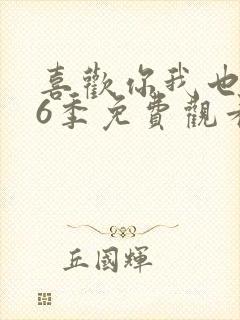 喜歡你我也
6季免費觀看
丘國輝